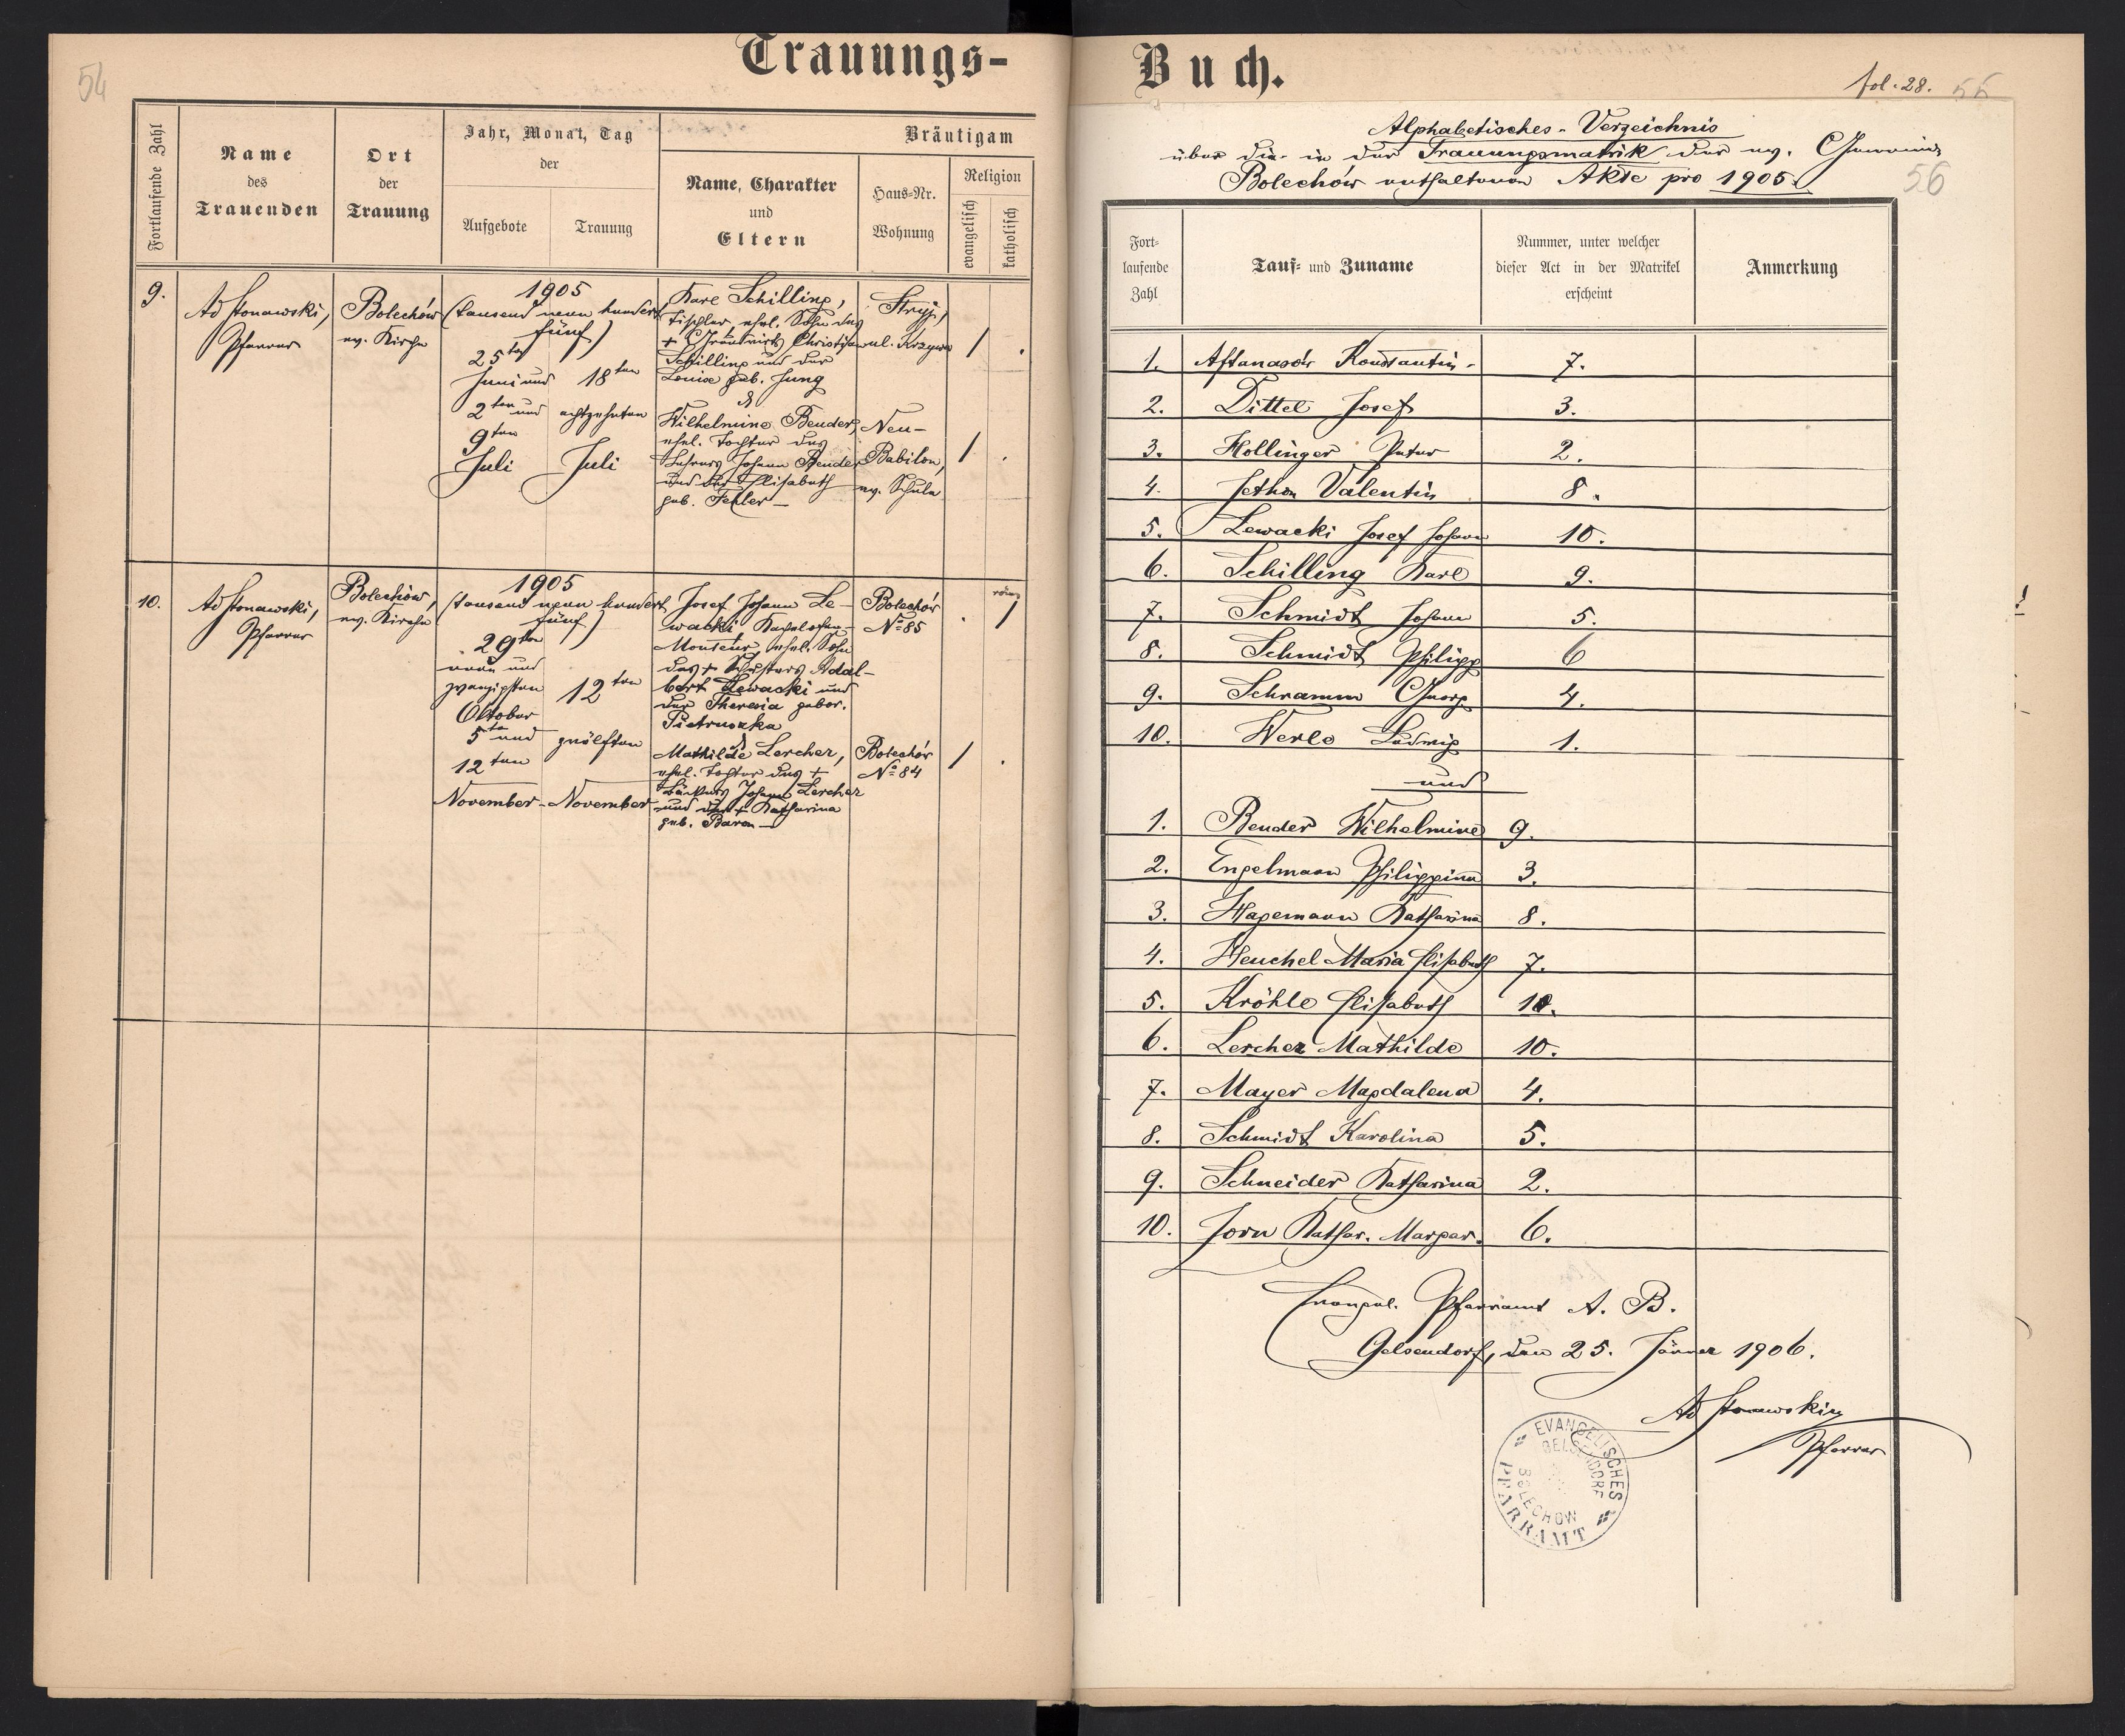 Trauungs-
54
Fortlaufende Zahl
Name
des
Trauenden
Ort
der
Trauung
Jahr, Monat, Tag
der
Aufgebote
Trauung
Bräutigam
Name, Charakter
und
Eltern
Haus-Nr.
Wohnung
Religion
evangelisch
katholisch
9.
Ad Stonawski,
Pfarrer
Bolechów
ev. Kirche
1905
(tausend neun hundert
fünf)
25ten
Juni und
2ten und
9ten
Juli
18ten
achtzehnten
Juli
Karl Schilling,
Tischler, ehel. Sohn des
Christian
Schilling und der
Louise geb. Jung
&
Wilhelmine Bender,
ehel. Tochter des
Lehrers Johann Bender
und der Elisabeth
geb. Fehler
Stryj,
ul.
Neu-
Babilon,
ev. Schule
10.
Ad Stonawski,
Pfarrer
Bolechów,
ev. Kirche
1905
(tausend neun hundert
fünf)
29ten
neun und
zwanzigsten
Oktober
5ten und
12ten
November
12ten
zwölften
November
Josef Johann Le-
wacki, Kachelofen-
Monteur, ehel. Sohn
des + Schusters Adal-
bert Lewacki und
der Theresia gebor.
Pietruszka
&
Mathilde Lercher,
ehel. Tochter des +
Bäckers Johann Lercher
und der + Katharina
geb. Baron
Bolechów
No 85
Bolechów
No 84
röm.
Buch.
fol. 28.
55
56
Alphabetisches Verzeichnis
über die in der Trauungsmatrik der ev. Gemeinde
Bolechów enthaltenen Akte pro 1905.
Fort-
laufende
Zahl
Tauf- und Zuname
Nummer, unter welcher
dieser Act in der Matrikel
erscheint
Anmerkung
1. Aftanasów Konstantin 7.
2. Dittel Josef 3.
3. Hollinger Peter 2.
4. Jethon Valentin 8.
5. Lewacki Josef Johann 10.
6. Schilling Karl 9.
7. Schmidt Johann 5.
8. Schmidt Philipp 6
9. Schramm Georg 4.
10. Werle Ludwig 1.
und
1. Bender Wilhelmine 9.
2. Engelmann Philippina 3.
3. Hagemann Katharina 8.
4. Heuchel Maria Elisabeth 7.
5. Kröhle Elisabeth 1.
6. Lercher Mathilde 10.
7. Mayer Magdalena 4.
8. Schmidt Karolina 5.
9. Schneider Katharina 2.
10. Jorn Kathar. Margar. 6.
Evangel. Pfarramt A. B.
Gelsendorf, den 25. Jänner 1906.
Ad Stonawski
Pfarrer
EVANGELISCHES
PFARRAMT
GELSENDORF
BOLECHOW